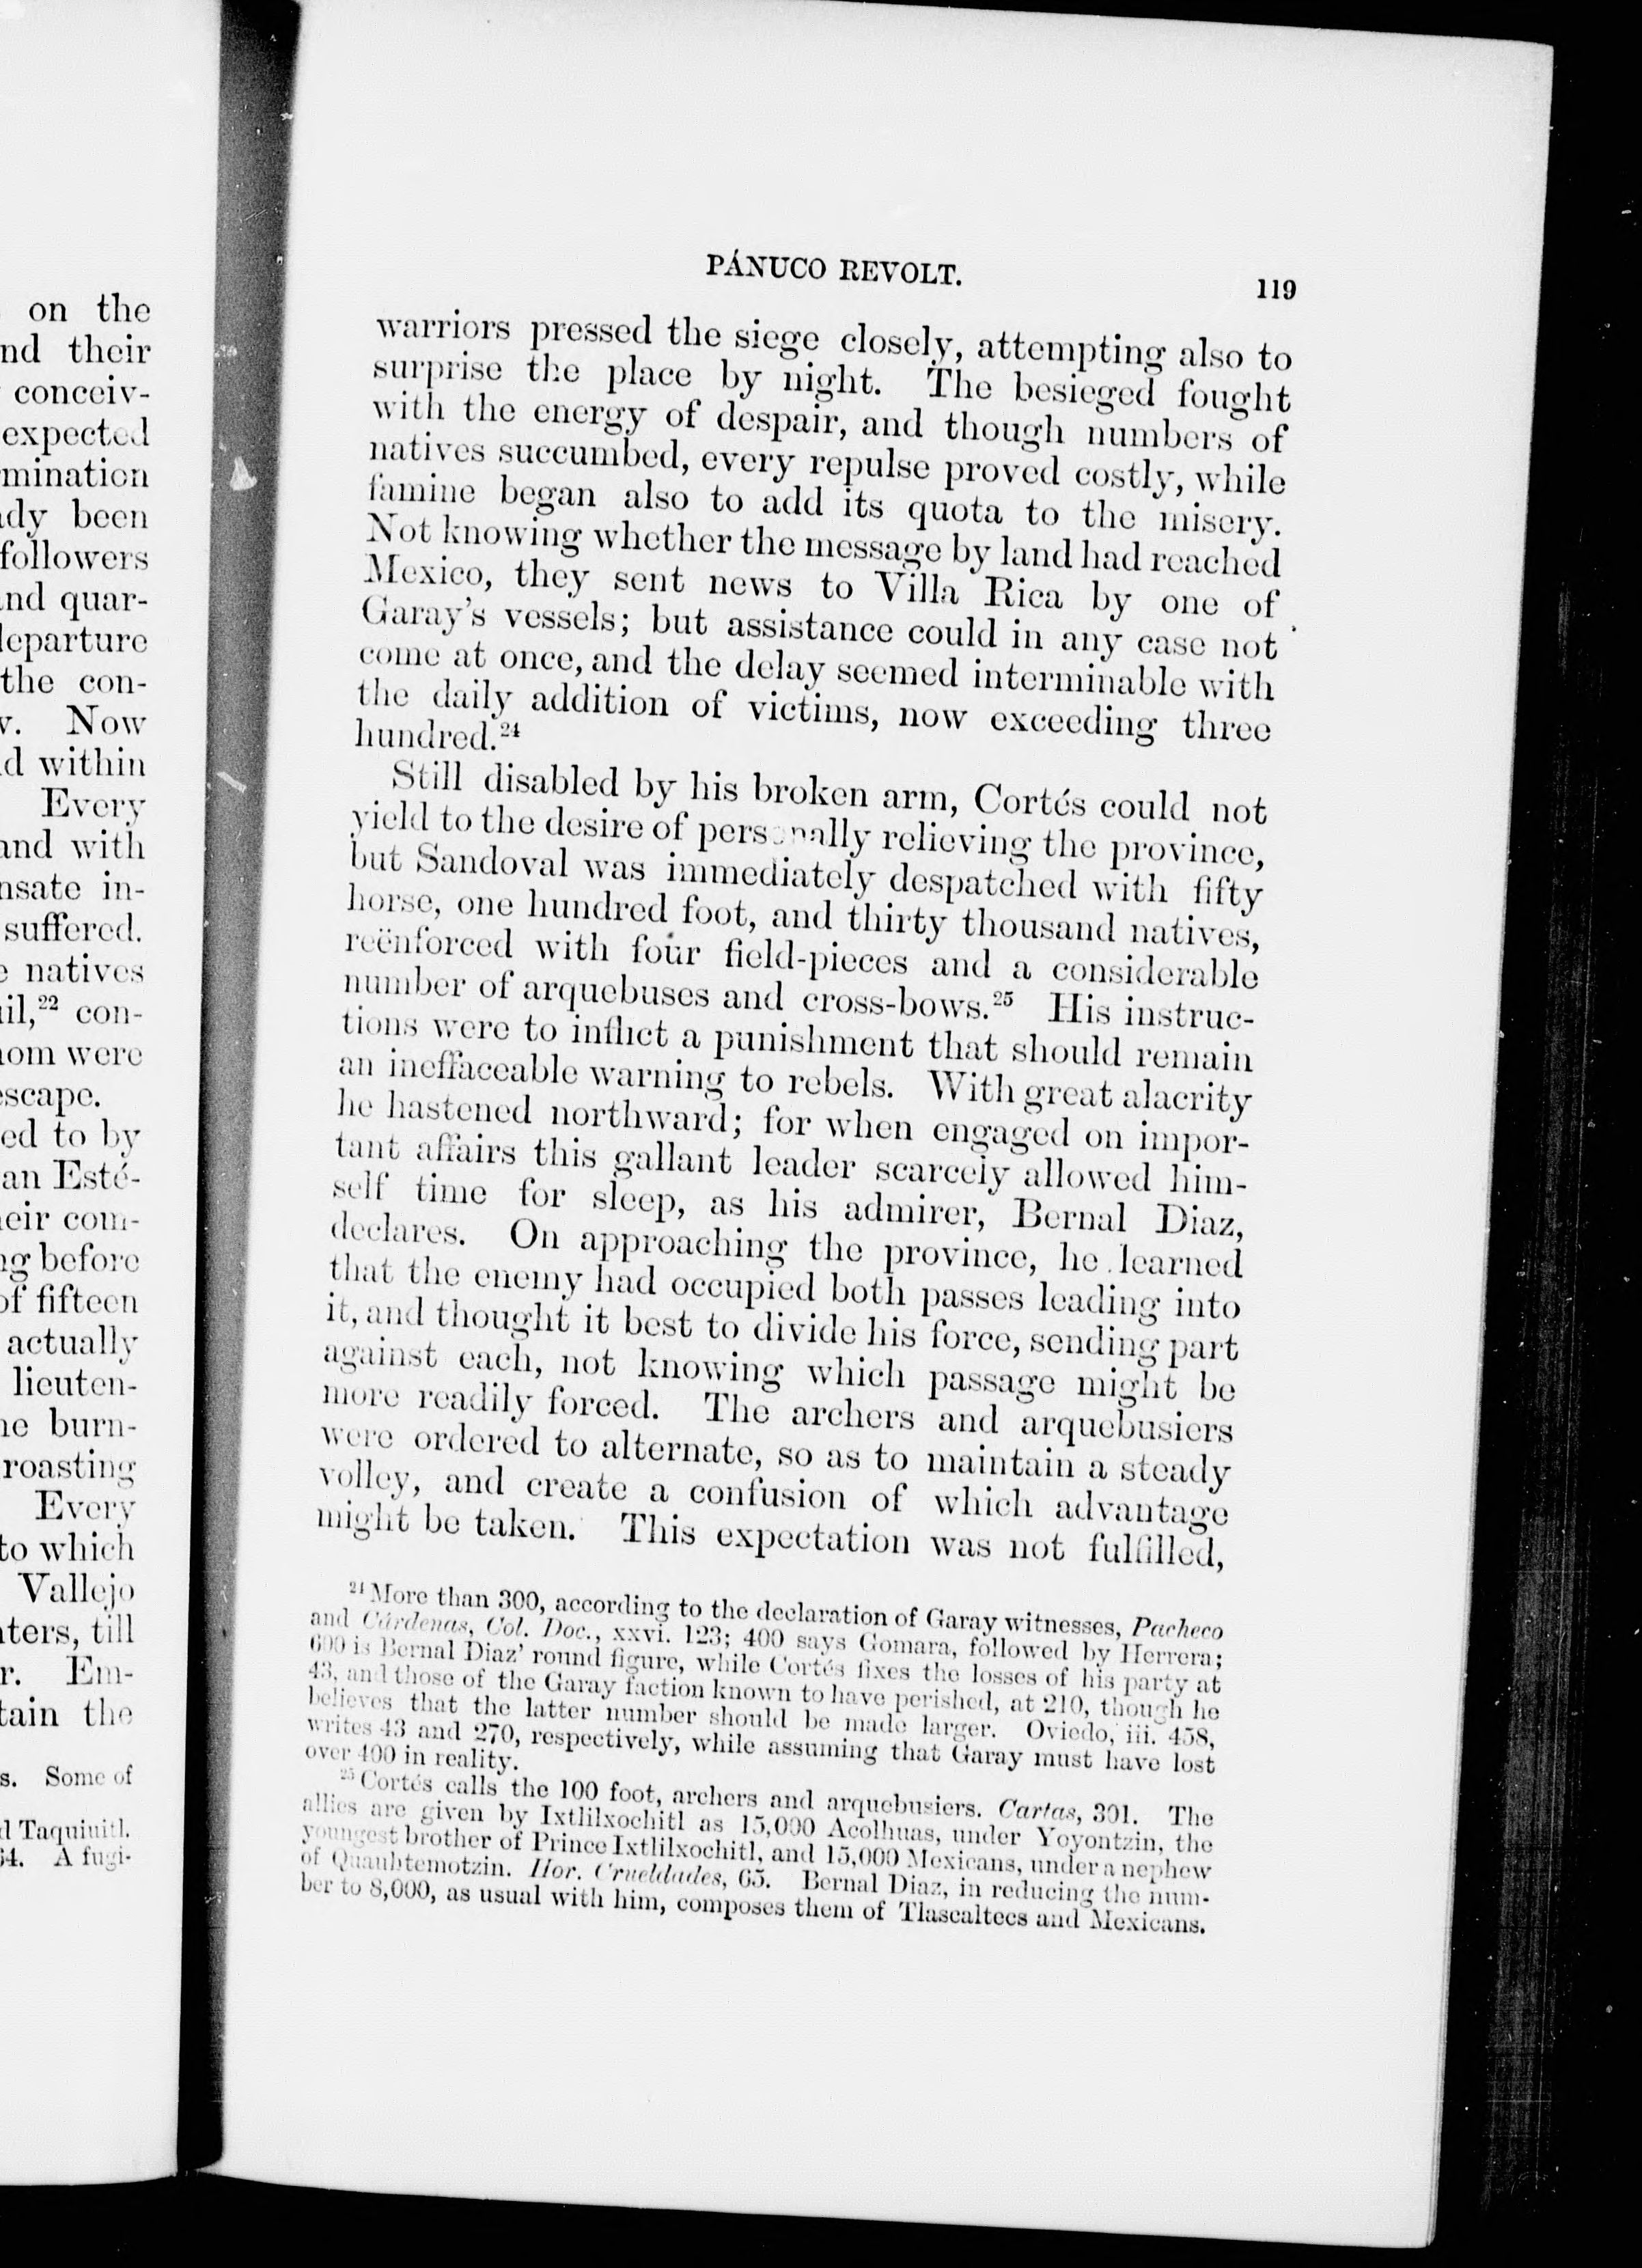 on the
nd their
conceiv-
expected
mination
dy been
followers
nd quar-
departure
the con-
v. Now
d within
Every
and with
nsate in-
suffered.
e natives
il,²² con-
om were
escape.
ed to by
an Esté-
eir com-
ng before
of fifteen
actually
lieuten-
ne burn-
roasting
Every
to which
Vallejo
ters, till
r. Em-
tain the
s. Some of
d Taquiuitl.
64. A fugi-
PÁNUCO REVOLT.
119
warriors pressed the siege closely, attempting also to
surprise the place by night. The besieged fought
with the energy of despair, and though numbers of
natives succumbed, every repulse proved costly, while
famine began also to add its quota to the misery.
Not knowing whether the message by land had reached
Mexico, they sent news to Villa Rica by one of
Garay's vessels; but assistance could in any case not
come at once, and the delay seemed interminable with
the daily addition of victims, now exceeding three
hundred.²⁴
Still disabled by his broken arm, Cortés could not
yield to the desire of personally relieving the province,
but Sandoval was immediately despatched with fifty
horse, one hundred foot, and thirty thousand natives,
reënforced with four field-pieces and a considerable
number of arquebuses and cross-bows.²⁵ His instruc-
tions were to inflict a punishment that should remain
an ineffaceable warning to rebels. With great alacrity
he hastened northward; for when engaged on impor-
tant affairs this gallant leader scarcely allowed him-
self time for sleep, as his admirer, Bernal Diaz,
declares. On approaching the province, he learned
that the enemy had occupied both passes leading into
it, and thought it best to divide his force, sending part
against each, not knowing which passage might be
more readily forced. The archers and arquebusiers
were ordered to alternate, so as to maintain a steady
volley, and create a confusion of which advantage
might be taken. This expectation was not fulfilled,
²⁴ More than 300, according to the declaration of Garay witnesses, Pacheco
and Cárdenas, Col. Doc., xxvi. 123; 400 says Gomara, followed by Herrera;
600 is Bernal Diaz' round figure, while Cortés fixes the losses of his party at
43, and those of the Garay faction known to have perished, at 210, though he
believes that the latter number should be made larger. Oviedo, iii. 458,
writes 43 and 270, respectively, while assuming that Garay must have lost
over 400 in reality.
²⁵ Cortés calls the 100 foot, archers and arquebusiers. Cartas, 301. The
allies are given by Ixtlilxochitl as 15,000 Acolhuas, under Yoyontzin, the
youngest brother of Prince Ixtlilxochitl, and 15,000 Mexicans, under a nephew
of Quauhtemotzin. Hor. Crueldades, 65. Bernal Diaz, in reducing the num-
ber to 8,000, as usual with him, composes them of Tlascaltecs and Mexicans.